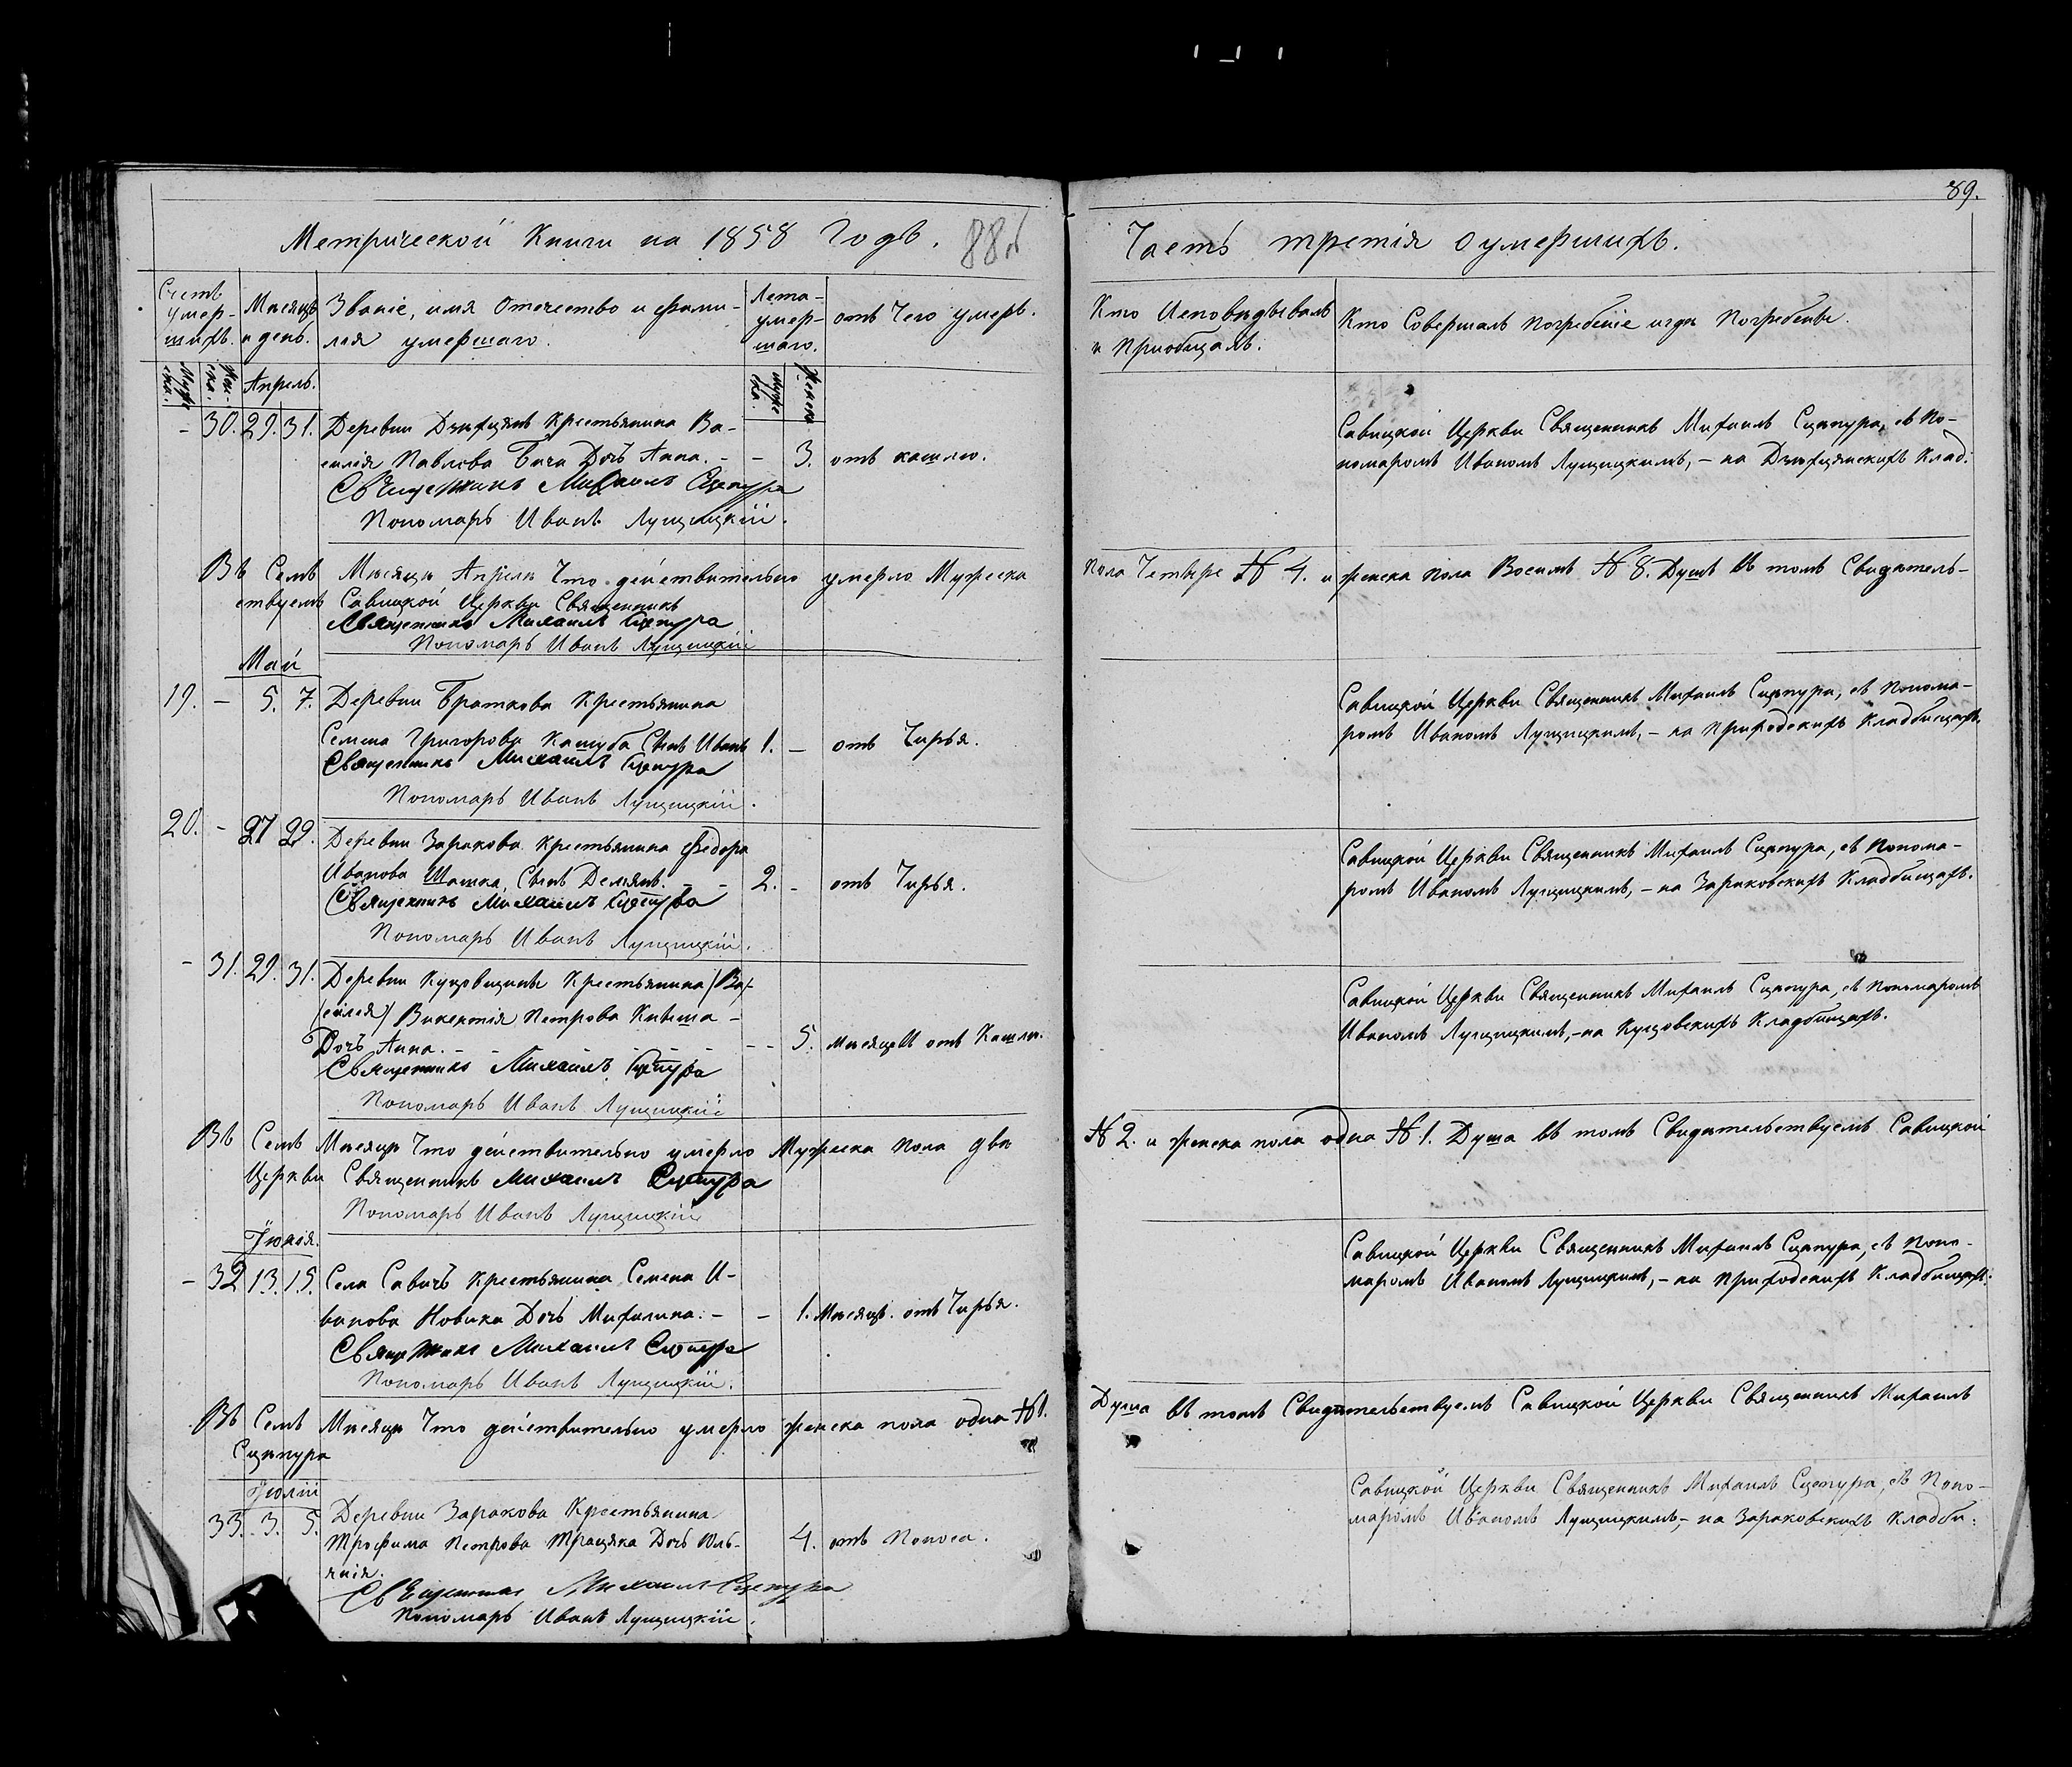 89.
Метрической Книги на 1858 Годъ. 88об
Часть третія о умершихъ.
Счетъ умер-шихъ.
Мѣсяцъ и день.
Званіе, имя Отечество и фами-
лія умершаго.
Лета умер-шаго.
отъ Чего умеръ.
Кто Исповѣдывалъ
и Приобщалъ.
Кто Совершалъ Погребеніе и гдѣ Погребены.
Муже-ска. Жен-ска.
Апрель.
Муже-ска. Женска
- 30. 29. 31. Деревни Крестьянина Ва-
силія Павлова Дочь Анна. - - 3. отъ кашлю.
Священникъ Михаилъ Сцепура
Пономарь Иванъ Лущицкій.
Савицкой Церкви Священникъ Михаилъ Сцепура, съ По-
номаромъ Иваномъ Лущицкимъ, - на Клад:
Въ Семъ Мѣсяцѣ Апрелѣ Что действительно умерло Мужеска Пола Четыре № 4. и женска пола Восемъ № 8. Душъ въ томъ Свидѣтель-
ствуемъ Савицкой Церкви Священникъ
Священникъ Михаилъ Сцепура
Пономарь Иванъ Лущицкій
Май
19. - 5. 7. Деревни Браткова Крестьянина
Семена Григорова Кашуба Сынъ Иванъ 1. - отъ Чирья.
Священникъ Михаилъ Сцепура
Пономарь Иванъ Лущицкій.
Савицкой Церкви Священникъ Михаилъ Сцепура, съ Понома-
ромъ Иваномъ Лущицкимъ, - на Приходскихъ Кладбищахъ.
20. - 27 29. Деревни Заракова Крестьянина Федора
Иванова Шашка, Сынъ Деміянъ. - - 2. - отъ Чирья.
Священникъ Михаилъ Сцепура
Пономарь Иванъ Лущицкій.
Савицкой Церкви Священникъ Михаилъ Сцепура, съ Понома-
ромъ Иваномъ Лущицкимъ, - на Зараковскихъ Кладбищахъ.
- 31. 29. 31. Деревни Крестьянина (Ва)
(силея) Викентія Петрова -
Дочь Анна. - - - - - 5. мѣсяцъ отъ Кашлю.
Священникъ Михаилъ Сцепура
Пономарь Иванъ Лущицкій
Савицкой Церкви Священникъ Михаилъ Сцепура, съ Пономаромъ
Иваномъ Лущицкимъ, - на Кладбищахъ.
Въ Семъ Мѣсяцѣ Что действительно умерло Мужеска пола два № 2. и женска пола одна № 1. Душа въ томъ Свидѣтельствуемъ Савицкой
Церкви Священникъ Михаилъ Сцепура
Пономарь Иванъ Лущицкій
Іюнія.
- 32 13. 15. Села Савичъ Крестьянина Семена И-
ванова Новика Дочь Михалина. - - 1. Мѣсяцъ. отъ Чирья.
Священникъ Михаилъ Сцепура
Пономарь Иванъ Лущицкій.
Савицкой Церкви Священникъ Михаилъ Сцепура, съ Поно-
маромъ Иваномъ Лущицкимъ, - на Приходскихъ Кладбищахъ.
Въ Семъ Мѣсяцѣ Что действительно умерло женска пола одна № 1. Душа въ томъ Свидѣтельствуемъ Савицкой Церкви Священникъ Михаилъ
Сцепура
Іюлій
33. 3. 5. Деревни Заракова Крестьянина
Трофима Петрова Трацяка Дочь Юль-
янія. 4. отъ Поноса.
Священникъ Михаилъ Сцепура
Пономарь Иванъ Лущицкій.
Савицкой Церкви Священникъ Михаилъ Сцепура, съ Поно-
маромъ Иваномъ Лущицкимъ, - на Зараковскихъ Кладби: